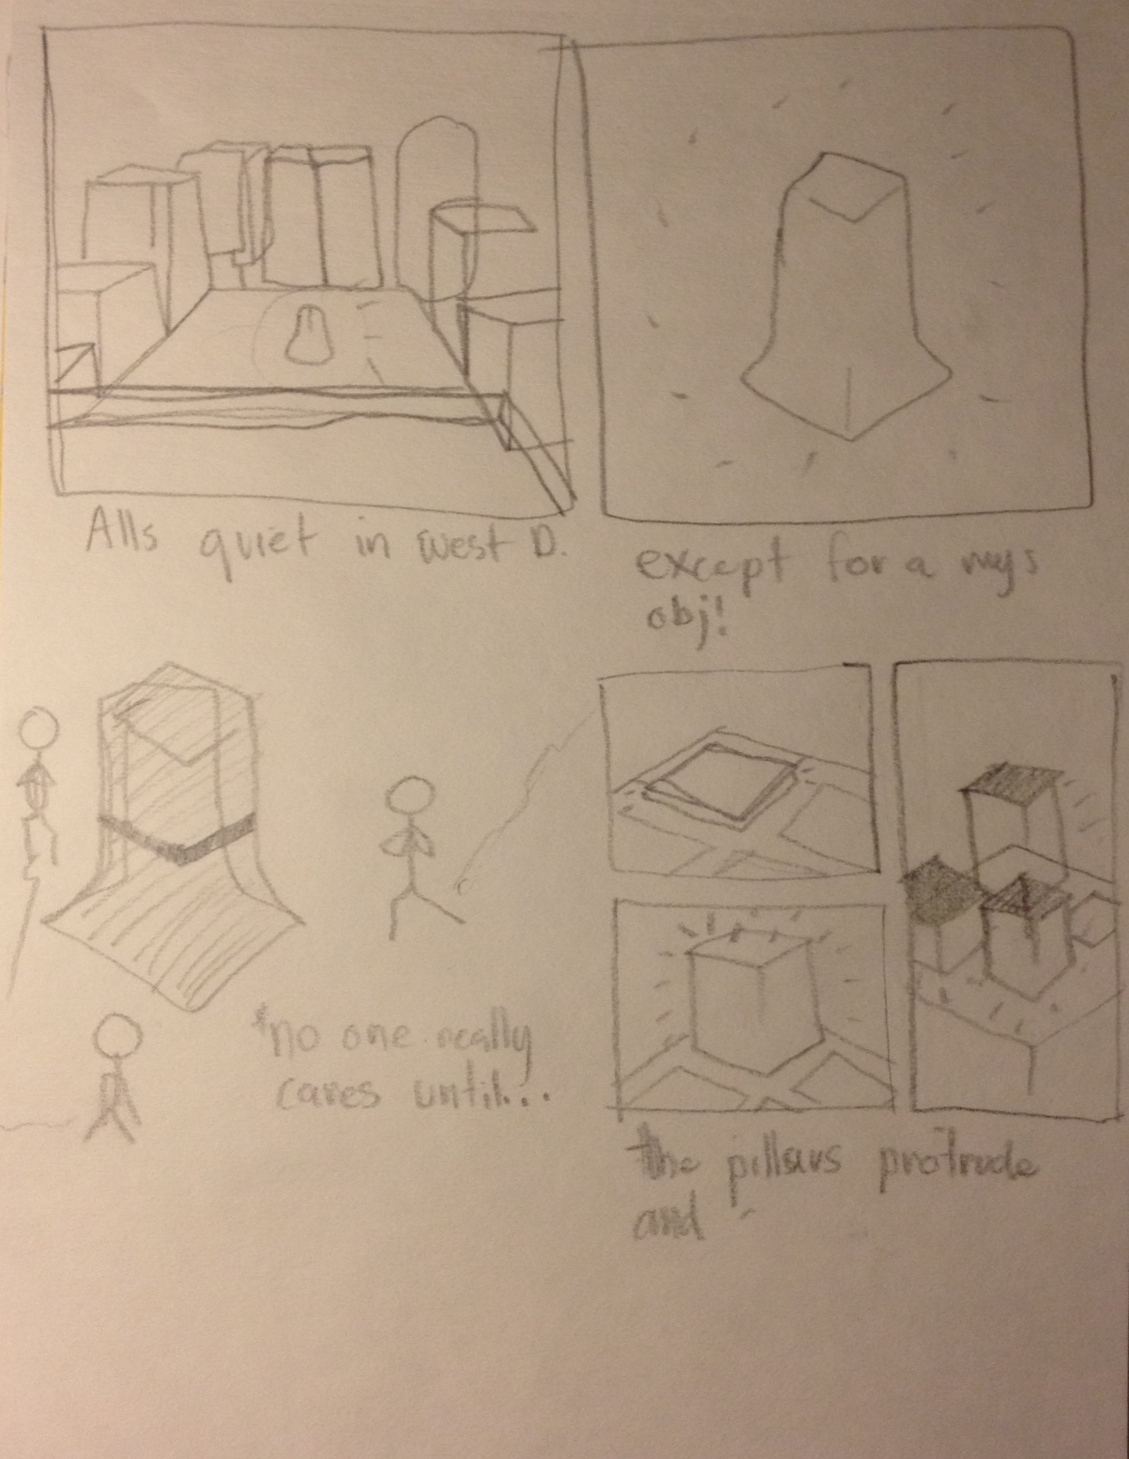 Alls quiet in west D.
except for a mys
obj!
*no one really
cares until...
the pillars protrude
and